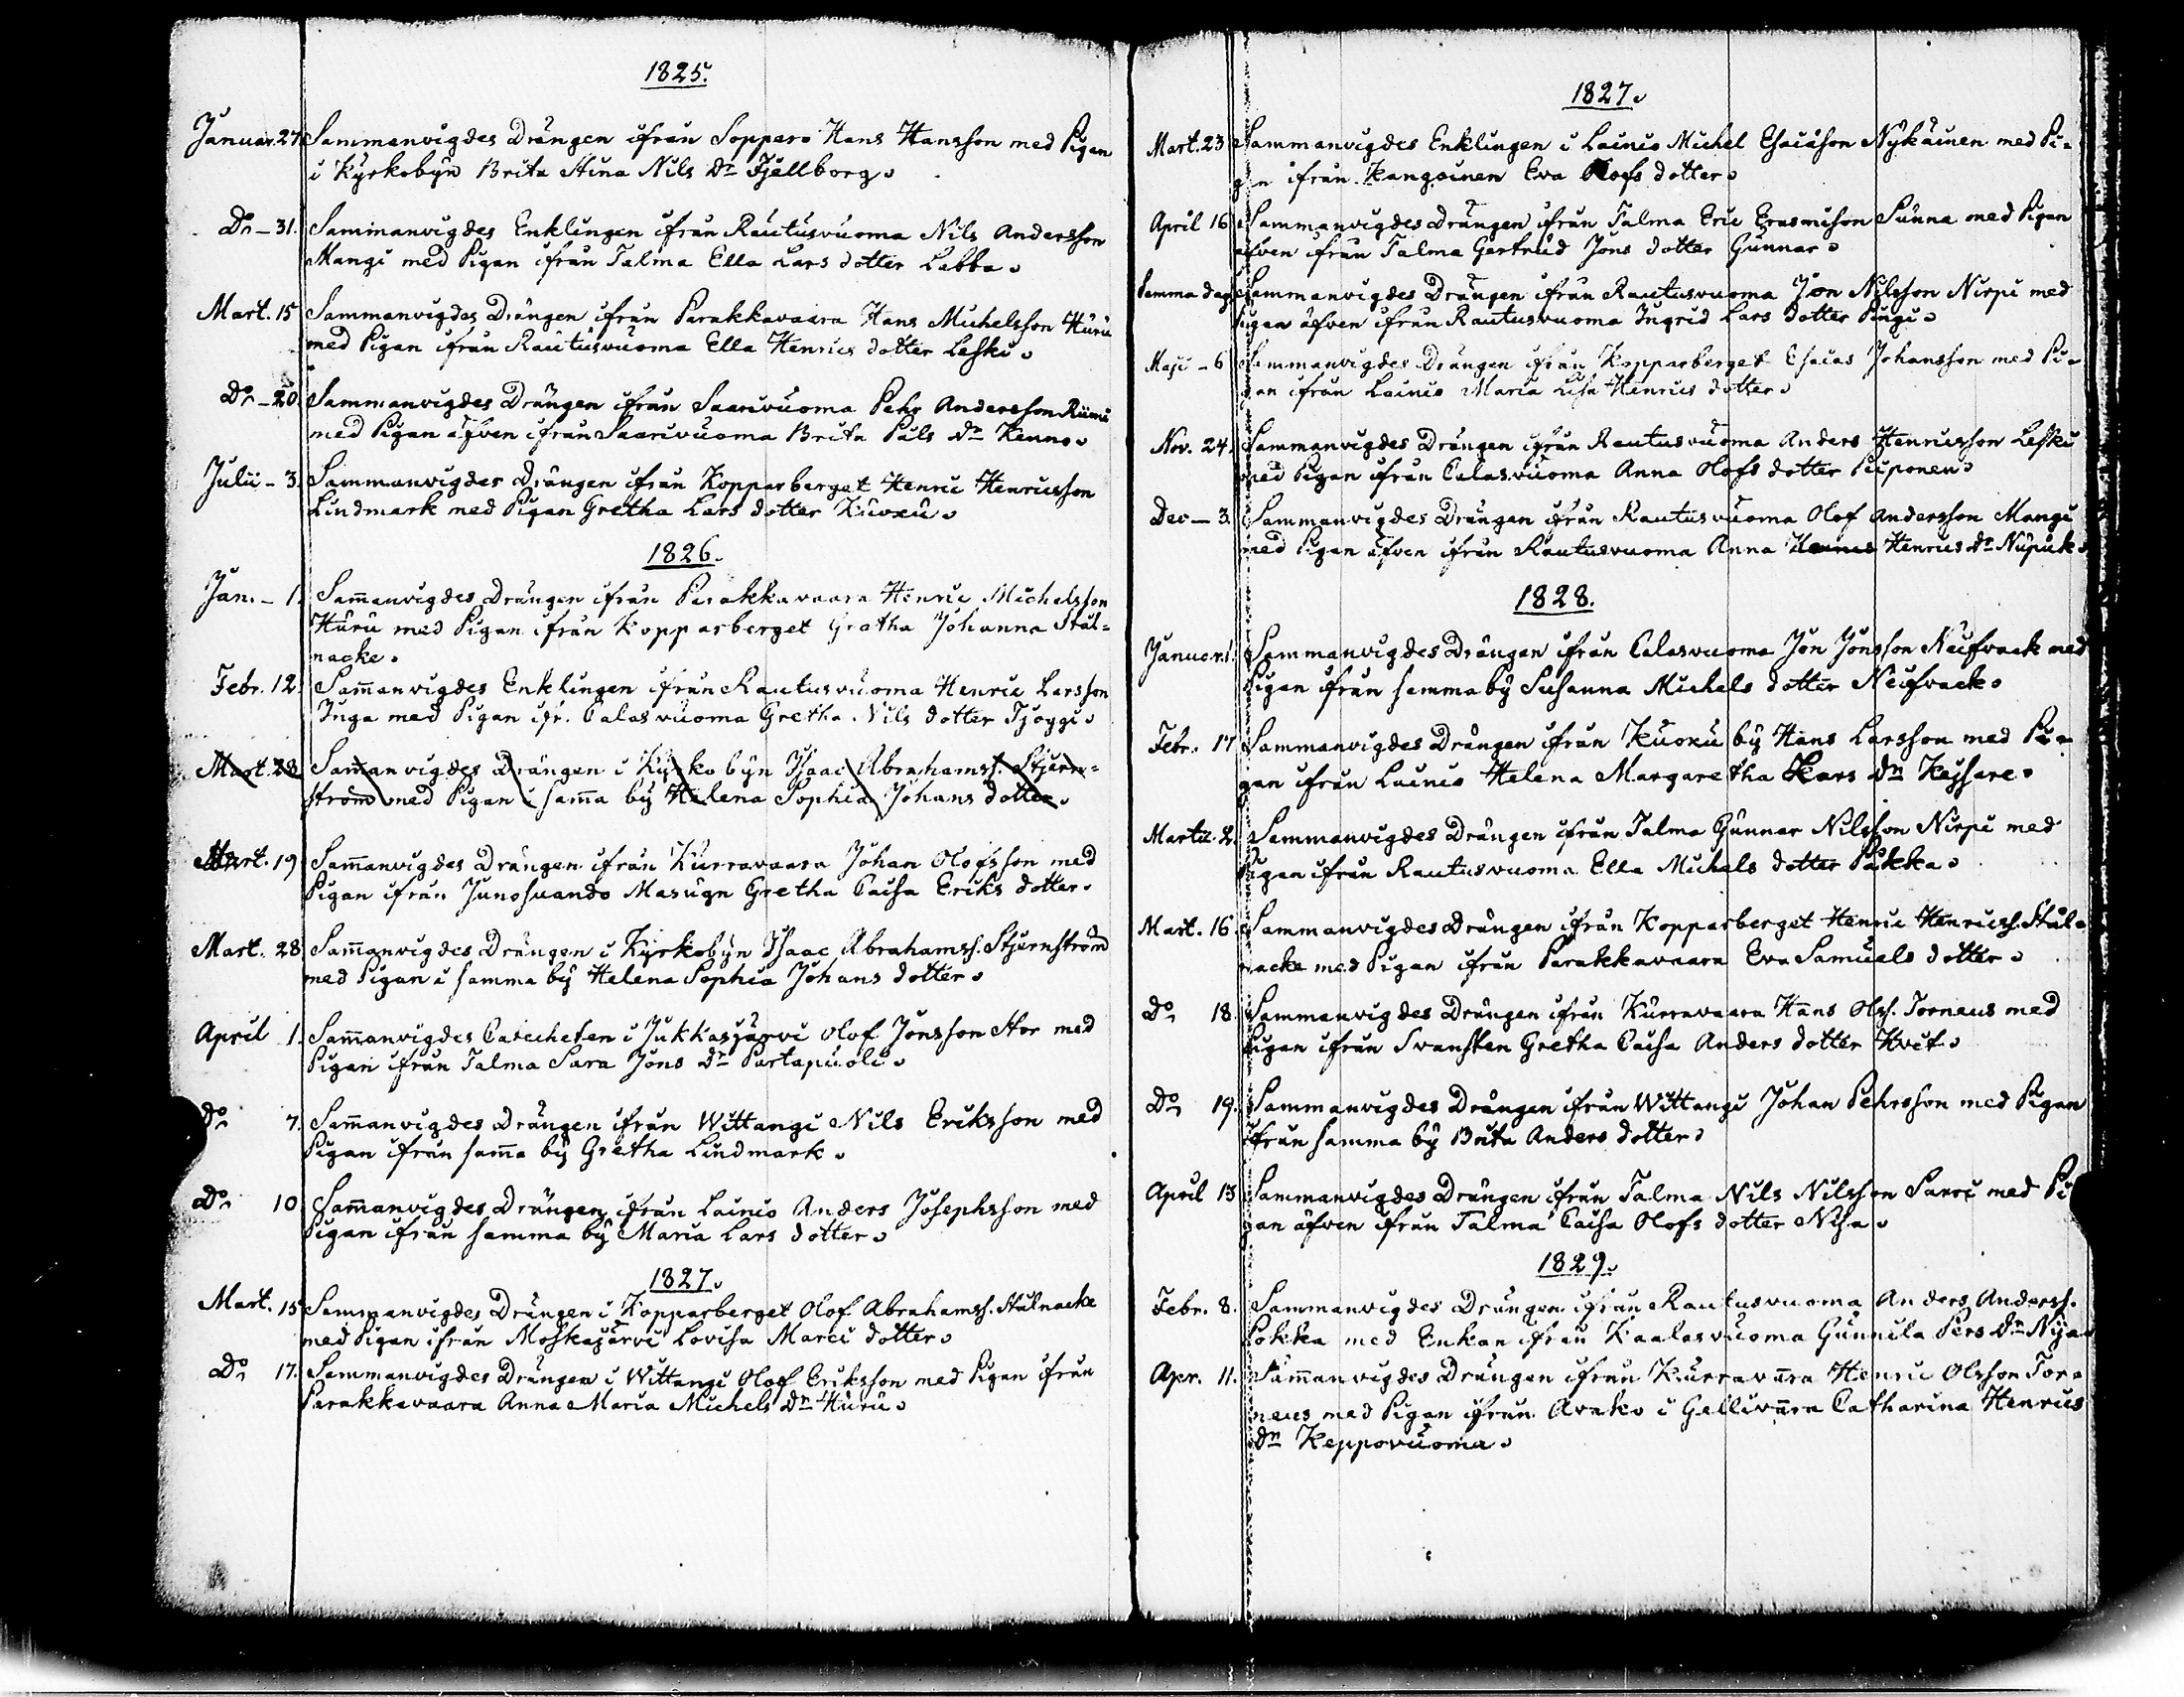 1825.
Januar. 27. Sammanvigdes Drängen ifrån Soppero Hans Hansson med Pigan
i Kyrkobyn Brita Stina Nils Dr Fjellborg.
Do – 31. Sammanvigdes Enklingen ifrån Rautusvuoma Nils Andersson
Mangi med Pigan ifrån Talma Ella Lars dotter Labba.
Mart. 15 Sammanvigdes Drängen ifrån Parakkavaara Hans Michelsson Huru
med Pigan ifrån Rautusvuoma Ella Henrics dotter Leski.
Do – 20. Sammanvigdes Drängen ifrån Saarivuoma Pehr Andersson Riimi
med Pigan äfven ifrån Saarivuoma Brita Påls Dr Kenno.
Julii – 3. Sammanvigdes Drängen ifrån Kopparberget Henric Henricsson
Lindmark med Pigan Gretha Lars dotter Kuoxu.
1826.
Jan. – 1. Sam̄anvigdes Drängen ifrån Parakkavaara Henric Michelsson
Huru med Pigan ifrån Kopparberget Gretha Johanna Stål=
nacke.
Febr. 12. Sam̄anvigdes Enklingen ifrån Rautusvuoma Henric Larsson
Inga med Pigan ifr. Calasvuoma Gretha Nils dotter Tjoggi.
Mart. 28 Sam̄anvigdes Drängen i Kyrkobyn Isaac Abrahamss. Stjern=
ström med Pigan i sam̄a by Helena Sophia Johans dotter.
Mart. 19 Sam̄anvigdes Drängen ifrån Kurravaara Johan Olofsson med
Pigan ifrån Junosuando Masugn Gretha Caisa Eriks dotter.
Mart. 28 Sam̄anvigdes Drängen i Kyrkobyn Isaac Abrahamss. Stjernström
med Pigan i samma by Helena Sophia Johans dotter.
April 1. Sam̄anvigdes Catecheten i Jukkasjärvi Olof Jonsson Stor med
Pigan ifrån Talma Sara Jons Dr Partapuoli.
Do 7. Sam̄anvigdes Drängen ifrån Wittangi Nils Eriksson med
Pigan ifrån sam̄a by Gretha Lindmark.
Do 10 Sam̄anvigdes Drängen ifrån Lainio Anders Josephsson med
Pigan ifrån samma by Maria Lars dotter.
1827.
Mart. 15 Sammanvigdes Drängen i Kopparberget Olof Abrahamss. Stålnacke
med Pigan ifrån Moskajärvi Lovisa Marci dotter.
Do 17. Sammanvigdes Drängen i Wittangi Olof Eriksson med Pigan ifrån
Parakkavaara Anna Maria Michels Dr Huru.
1827.
Mart. 23 Sammanvigdes Enklingen i Lainio Michel Esaiason Nykäinen med Pi=
gan ifrån Kangoinen Eva Olofs dotter.
April 16 Sammanvigdes Drängen ifrån Talma Eric Erasmison Sunna med Pigan
äfven ifrån Talma Gertrud Jons dotter Gunnar.
Samma dag Sammanvigdes Drängen ifrån Rautusvuoma Jon Nilsson Nirpi med
Pigan äfven ifrån Rautusvuoma Ingrid Lars dotter Pingi.
Maji – 6 Sammanvigdes Drängen ifrån Kopparberget Esaias Johansson med Pi=
gan ifrån Lainio Maria Lisa Henrics dotter.
Nov. 24. Sammanvigdes Drängen ifrån Rautusvuoma Anders Henricsson Leski
med Pigan ifrån Calasvuoma Anna Olofs dotter Piiponen.
Dec – 3. Sammanvigdes Drängen ifrån Rautusvuoma Olof Andersson Mangi
med Pigan äfven ifrån Rautusvuoma Anna Henrics Dr Nupuk.
1828.
Januar. 1. Sammanvigdes Drängen ifrån Calasvuoma Jon Jonsson Neifvack med
Pigan ifrån samma by Susanna Michels dotter Neifvack.
Febr. 17 Sammanvigdes Drängen ifrån Kuoxu by Hans Larsson med Pi=
gan ifrån Lainio Helena Margaretha Lars Dr Kejsare.
Martii. 2. Sammanvigdes Drängen ifrån Talma Gunnar Nilsson Nirpi med
Pigan ifrån Rautusvuoma Ella Michels dotter Påkka.
Mart. 16 Sammanvigdes Drängen ifrån Kopparberget Henric Henricss. Stål=
nacke med Pigan ifrån Parakkavaara Eva Samuels dotter.
Do 18. Sammanvigdes Drängen ifrån Kurravaara Hans Olss. Torneus med
Pigan ifrån Svansten Gretha Caisa Anders dotter Kvit.
Do 19. Sammanvigdes Drängen ifrån Wittangi Johan Pehrsson med Pigan
ifrån samma by Brita Anders dotter.
April 13 Sammanvigdes Drängen ifrån Talma Nils Nilsson Sarri med Pi
gan äfven ifrån Talma Caisa Olofs dotter Nisa.
1829.
Febr. 8. Sammanvigdes Drängen ifrån Rautusvuoma Anders Anderss.
Pokka med Enkan ifrån Kaalasvuoma Gunnila Pers Dr Nija
Apr. 11. Sam̄anvigdes Drängen ifrån Kurravara Henric Olsson Tor=
neus med Pigan ifrån Avako i Gellivara Catharina Henrics
Dr Keppovuoma.